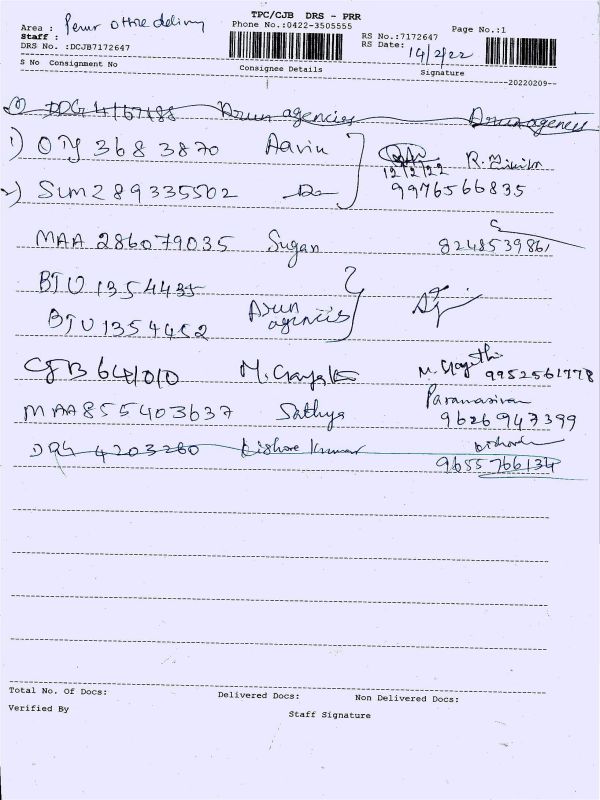 TPC/CJB DRS - PRR
Area : Perur office delivery
Phone No.:0422-3505555
Page No.:1
Staff :
RS No.:7172647
DRS No. :DCJB7172647
RS Date: 14/2/22
S No Consignment No Consignee Details Signature
20220209
Arun agencies Arun agencies
1) OTY 3683870 Aavin R.
12/2/22
2) SLM289335502 Do 9976566835
MAA 286079035 Sugan 8248539861
BTU 1354435
BTU 1354462 Arun agencies
CJB 641010 M. Gayathri M. Gayathri 9952561778
MAA855403637 Sathya Paramasivan
9626947399
DRG 4203260 Kishore Kumar Kishore
9655766134
Total No. Of Docs: Delivered Docs: Non Delivered Docs:
Verified By Staff Signature